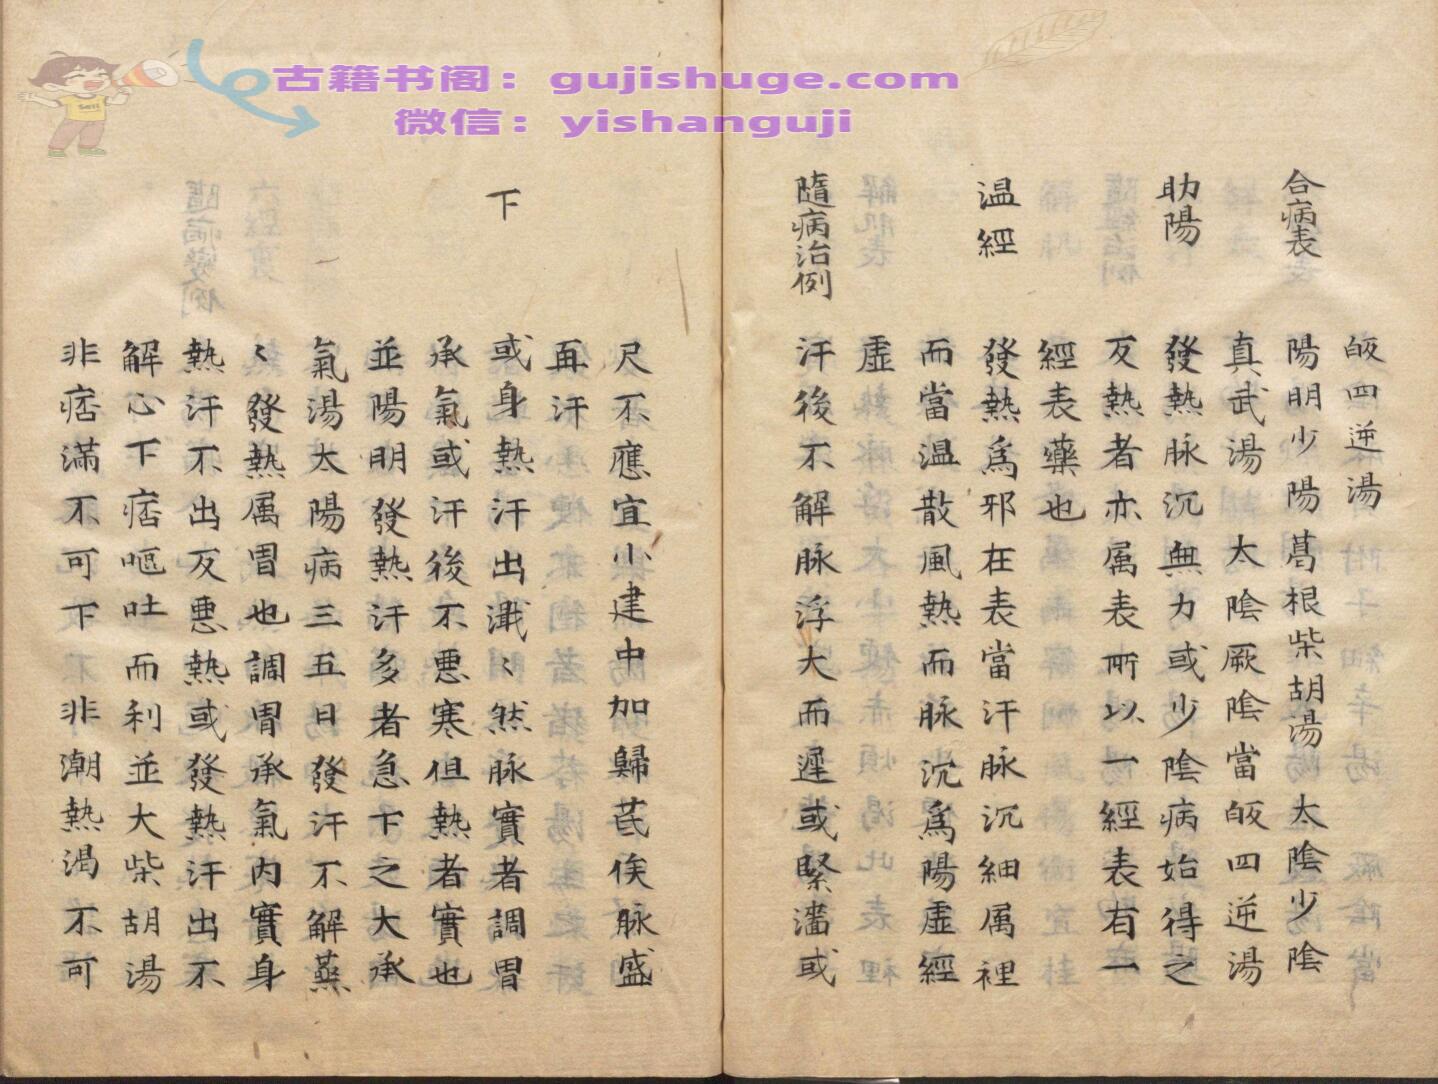 古籍书阁：gujishuge.com
微信：yishanguji
皈四逆湯
合病表
陽明少陽葛根柴胡湯太陰少陰
真武湯太陰厥陰當皈四逆湯
助陽
發熱脉沉無力或少陰病始得之
反熱者亦属表所以一經表有一
經表藥也
温經
發熱爲邪在表當汗脉沉細属裡
而當温散風熱而脉沉爲陽虛經
虛
隨病治例
汗後不解脉浮大而遲或緊濇或
尺不應宜小建中加歸芪俟脉盛
再汗
下
或身熱汗出濈〻然脉實者調胃
承氣或汗後不悪寒但熱者實也
並陽明發熱汗多者急下之大承
氣湯太陽病三五日發汗不解蒸
〻發熱属胃也調胃承氣内實身
熱汗不出反悪熱或發熱汗出不
解心下痞嘔吐而利並大柴胡湯
非痞滿不可下非潮熱渴不可